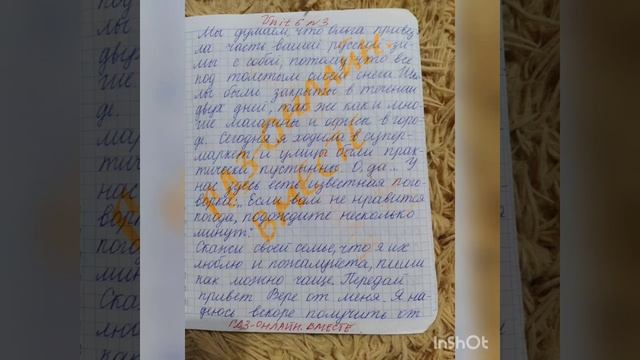 Unit 6 №3
Мы думаем, что Ольга привез
ла часть вашей русской зи-
мы с собой, потому что все
под толстым слоем снега. Шко
лы были закрыты в течении
двух дней, так же как и мно-
гие магазины и офисы в горо-
де. Сегодня я ходила в супер-
маркет, и улицы были прак-
тически пустынны. О, да... У
нас здесь есть известная пого-
ворка: „Если вам не нравится
погода, подождите несколько
минут."
Скажи своей семье, что я их
люблю и пожалуйста, пиши
как можно чаще. Передай
привет Вере от меня. Я на-
деюсь вскоре получить от
ГДЗ-ОНЛАЙН. ВМЕСТЕ
InShOt